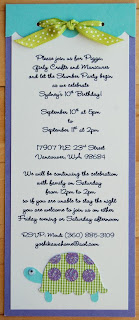 Please join us for Pizza,
Girly Crafts and Manicures
and let the Slumber Party begin
as we celebrate
Sydney's 10th Birthday!
September 10th at 5pm
to
September 11th at 2pm
17907 N.E. 23rd Street
Vancouver, WA 98684
We will be continuing the celebration
with family on Saturday
from 12pm to 2pm
so if you are unable to stay the night
you are welcome to join us on either
Friday evening or Saturday afternoon
RSVP: Mindi (360)